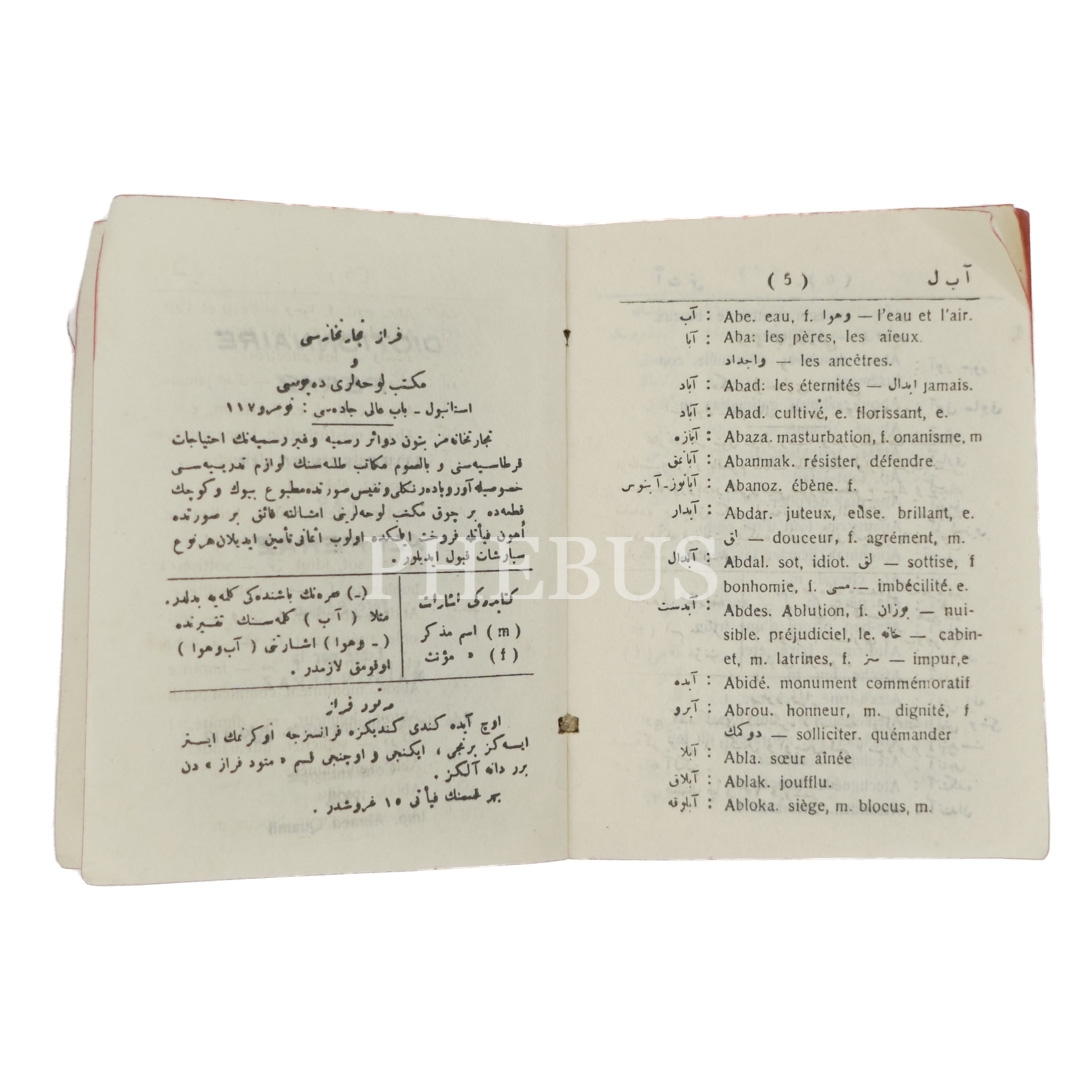 فراز تجارتخانه‌سی
و
مكتب لوحه‌لری ده‌پوسی
استانبول ـ باب عالی جاده‌سی : نومرو ۱۱۷
تجارتخانه‌مز بتون دوائر رسمیه و غیر رسمیه‌نك احتیاجات
قرطاسیه‌سنی و بالعموم مكاتب طلبه‌سنك لوازم تدریسیه‌سی
خصوصیله آوروپاده رنكلی و نفیس صورتده مطبوع بیوك و كوچك
قطعه‌ده بر چوق مكتب لوحه‌لرینی امثالنه فائق بر صورتده
أهون فیأتله فروخت ایلمكده اولوب اثمانی تأمین ایدیلان هر نوع
سپارشات قبول ایدیلور .
كتابده‌كی اشارات
( m ) اسم مذكر
( f ) » مؤنث
(ـ) صره‌نك باشنده‌كی كلمه‌یه بدلدر.
مثلا ( آب ) كلمه‌سنك تفسیرنده
( ـ وهوا ) اشارتنی ( آب وهوا )
اوقومق لازمدر .
مه‌تود فراز
اوچ آیده كندی كندیكزه فرانسزجه اوكرنمك ایستر
ایسه‌كز برنجی ، ایكنجی و اوچنجی قسم « متود فراز » دن
برر دانه آلكز .
بهر قسمنك فیأتی ۱۵ غروشدر .
( 5 ) آب ل
آب : Abe. eau, f. وهوا — l'eau et l'air.
آبا : Aba: les pères, les aïeux.
واجداد — les ancêtres.
آباد : Abad: les éternités — ابدال jamais.
آباد : Abad. cultivé, e. florissant, e.
آبازه : Abaza. masturbation, f. onanisme, m
آبانمق : Abanmak. résister, défendre
آبانوز ـ آبنوس : Abanoz. ébène. f.
آبدار : Abdar. juteux, euse. brillant, e.
لق — douceur, f. agrément, m.
آبدال : Abdal. sot, idiot. لق — sottise, f
bonhomie, f. سی — imbécilité. e.
آبدست : Abdes. Ablution, f. بوزان — nui-
sible. préjudiciel, le. خانه — cabin-
et, m. latrines, f. سز — impur,e
آبده : Abidé. monument commémoratif
آبرو : Abrou. honneur, m. dignité, f
دوكك — solliciter. quémander
آبلا : Abla. sœur aînée
آبلاق : Ablak. joufflu.
آبلوقه : Abloka. siège, m. blocus, m.
PHEBUS